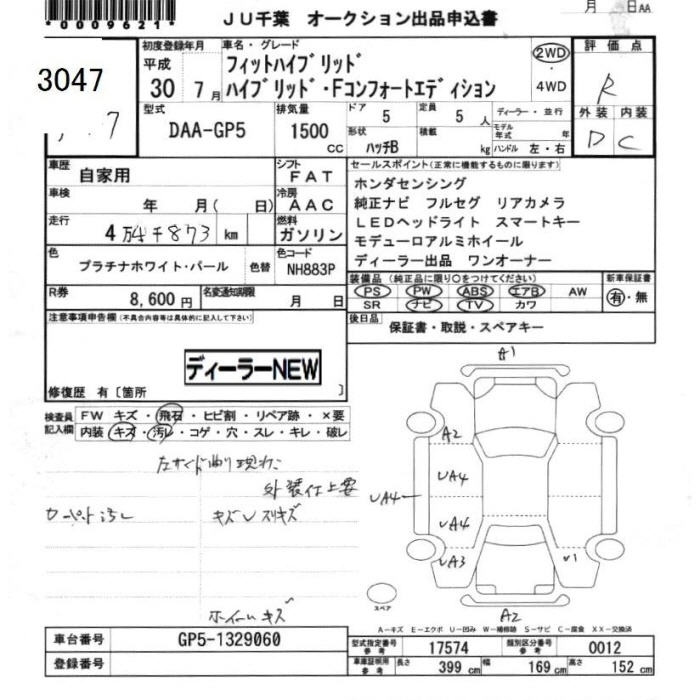 *0009621*
月 日 AA
JU千葉 オークション出品申込書
3047
初度登録年月 車名・グレード
平成 フィットハイブリッド
30 7月 ハイブリッド・Fコンフォートエディション
2WD・4WD
評価点
R
外装 内装
D C
7
型式 DAA-GP5
排気量 1500 CC
ドア 5 定員 5人
形状 ハッチB 積載 kg
ディーラー・並行
モデル年式 年
ハンドル 左・右
車歴 自家用
シフト FAT
車検 年 月(日)
冷房 AAC
走行 4万4千873 km
燃料 ガソリン
色 プラチナホワイト・パール 色替
色コード NH883P
R券 8,600円
名変通知期限 月 日
セールスポイント(正常に機能するものに限ります)
ホンダセンシング
純正ナビ フルセグ リアカメラ
LEDヘッドライト スマートキー
モデューロアルミホイール
ディーラー出品 ワンオーナー
装備品 (純正品に限り○をつけてください)
PS PW ABS エアB AW
SR ナビ TV カワ
新車保証書
有・無
後日品 保証書・取説・スペアキー
注意事項申告欄(不具合内容等は具体的に記入して下さい)
ディーラーNEW
修復歴 有〔箇所 〕
検査員記入欄
FW キズ・飛石・ヒビ割・リペア跡・×要
内装 キズ・汚レ・コゲ・穴・スレ・キレ・破レ
外装仕上要
カーペット汚レ
キズUスリキズ
ホイールキズ
A1
A2
UA4
UA4
UA4
UA3
U1
A2
スペア
A-キズ E-エクボ U-凹み W-補修跡 S-サビ C-腐食 XX-交換済
車台番号 GP5-1329060
登録番号
型式指定番号 参考 17574
類別区分番号 参考 0012
車庫証明用 参考 長さ 399 cm 幅 169 cm 高さ 152 cm